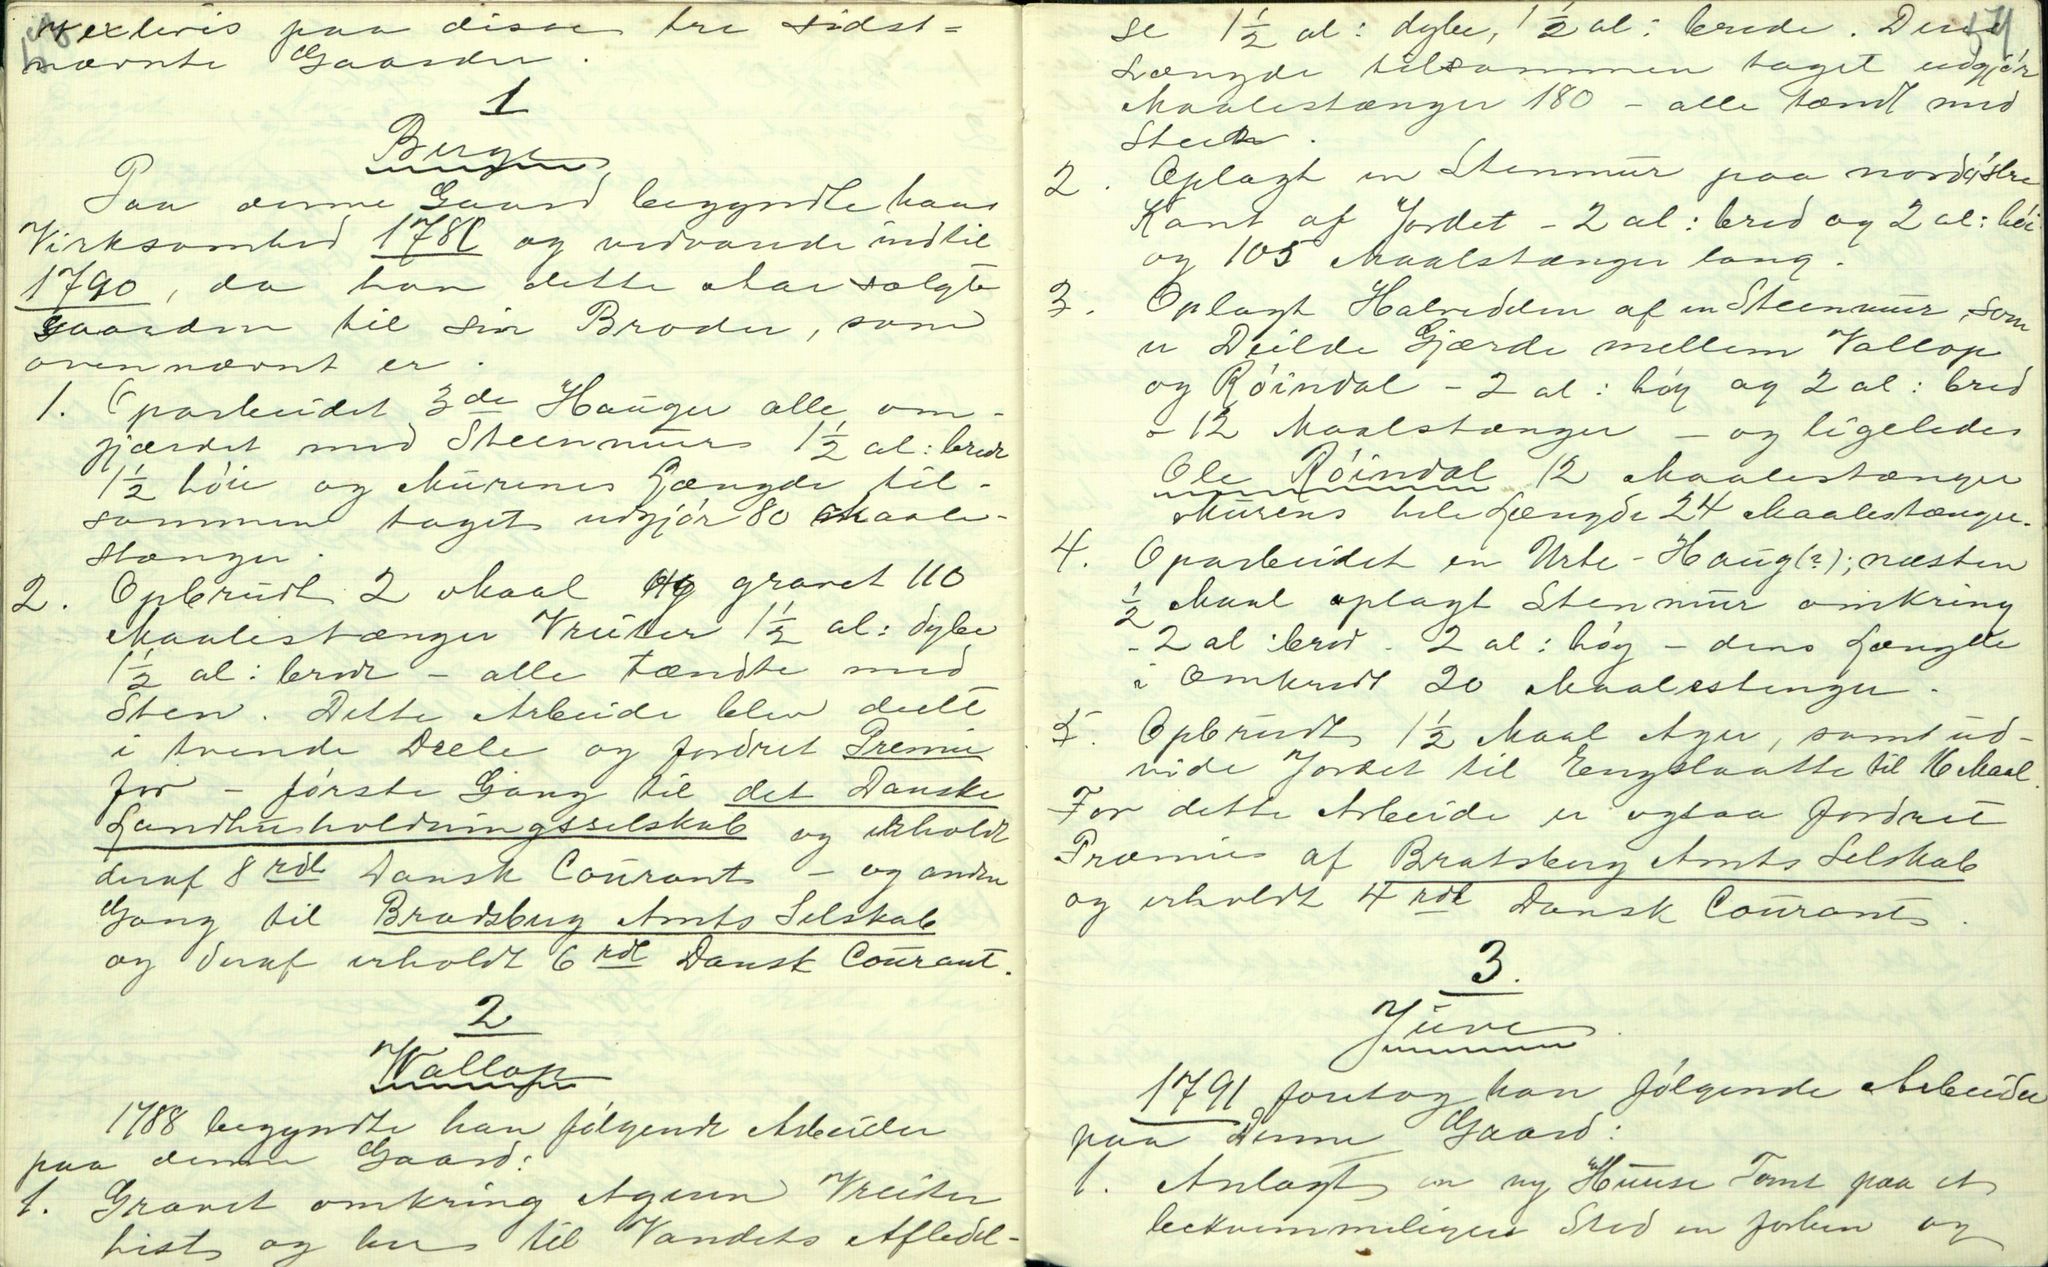 vexlevis paa disse tre sidst=
nævnte Gaarder.
1
Berge
Paa denne Gaard begyndte hans
Virksomhed 1781 og vedvarede indtil
1790, da han dette Aar solgte
Gaarden til sin Broder, som
ovennævnt er.
1. Oparbeidet 3de Hauger alle om-
gjærdet med Steenmurs 1½ al: brede
1½ høie og Murenes Længde til-
sammen taget udgjør 80 Maale-
stænger.
2. Opbrudt 2 Maal og gravet 110
Maalestænger Vreiter 1½ al: dybe
1½ al: brede - alle tændte med
Sten. Dette Arbeide blev deelt
i tvende Deele og fordret Premie
for - første Gang til det Danske
Landhusholdningsselskab og erholdt
deraf 8 rdl Dansk Courant - og anden
Gang til Bradsberg Amts Selskab
og deraf erholdt 6 rdl Dansk Courant.
2
Wallop
1788 begyndte han følgende Arbeider
paa denne Gaard:
1. Gravet omkring Ageren Vreiter
hist og her til Vandets Afledel-
54
se 1½ al: dybe, 1½ al: brede. Deres
Længde tilsammen taget udgjør
Maalestænger 180 - alle tændt med
Steen.
2. Oplagt en Stenmur paa nordøstre
Kant af Jordet - 2 al: bred og 2 al: høi
og 105 Maalstænger lang.
3. Oplagt Halvedelen af en Steenmur, som
er Deilde Gjærde mellem Vallop
og Røindal - 2 al: høy og 2 al: bred
- 12 Maalstænger - og ligeledes
Ole Røindal 12 Maalestænger
Murens hele Længde 24 Maalestænger.
4. Oparbeidet en Urte-Haug(?); næsten
½ Maal oplagt Stenmur omkring
- 2 al: bred - 2 al: høy - dens Længde
i Omkreds 20 Maalestenger.
5. Opbrudt 1½ Maal Ager, samt ud-
vide Jordet til Engslaatte til 16 Maal.
For dette Arbeide er ogsaa fordret
Præmie af Bratsberg Amts Selskab
og erholdt 4 rdl Dansk Courant.
3.
Juve
1791 foretog han følgende Arbeider
paa denne Gaard:
1. Anlagt en ny Huuse Tomt paa et
bekvemmeligere Sted en forhen og